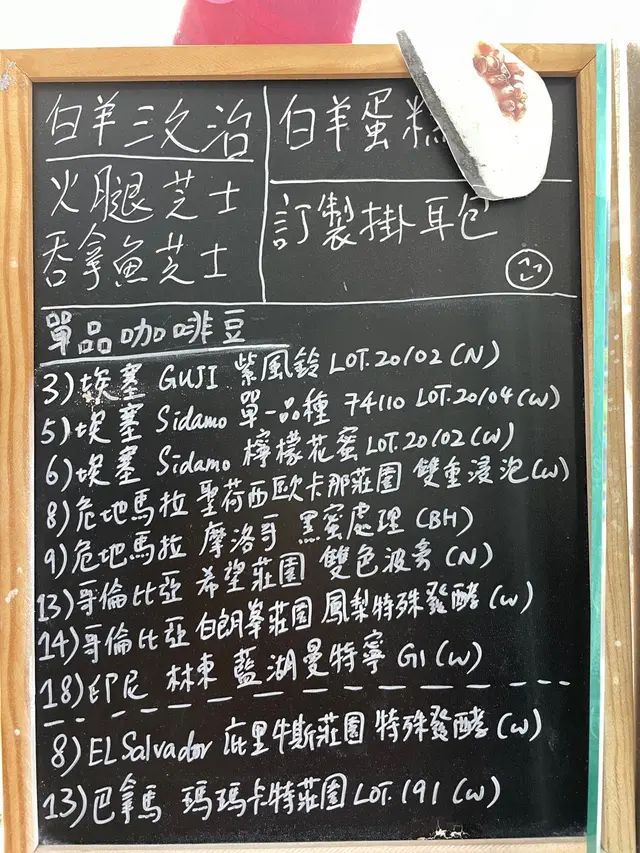 白羊三文治
火腿芝士
吞拿魚芝士
白羊蛋糕
訂製掛耳包
單品咖啡豆
3) 埃塞 GUJI 紫風鈴 LOT.20/02 (N)
5) 埃塞 Sidamo 單一品種 74110 LOT.20/04 (W)
6) 埃塞 Sidamo 檸檬花蜜 LOT.20/02 (W)
8) 危地馬拉 聖荷西歐卡那莊園 雙重浸泡 (W)
9) 危地馬拉 摩洛哥 黑蜜處理 (BH)
13) 哥倫比亞 希望莊園 雙色波旁 (N)
14) 哥倫比亞 白朗峯莊園 鳳梨特殊發酵 (W)
18) 印尼 林東 藍湖曼特寧 G1 (W)
8) EL Salvador 庇里牛斯莊園 特殊發酵 (W)
13) 巴拿馬 瑪瑪卡特莊園 LOT.191 (W)